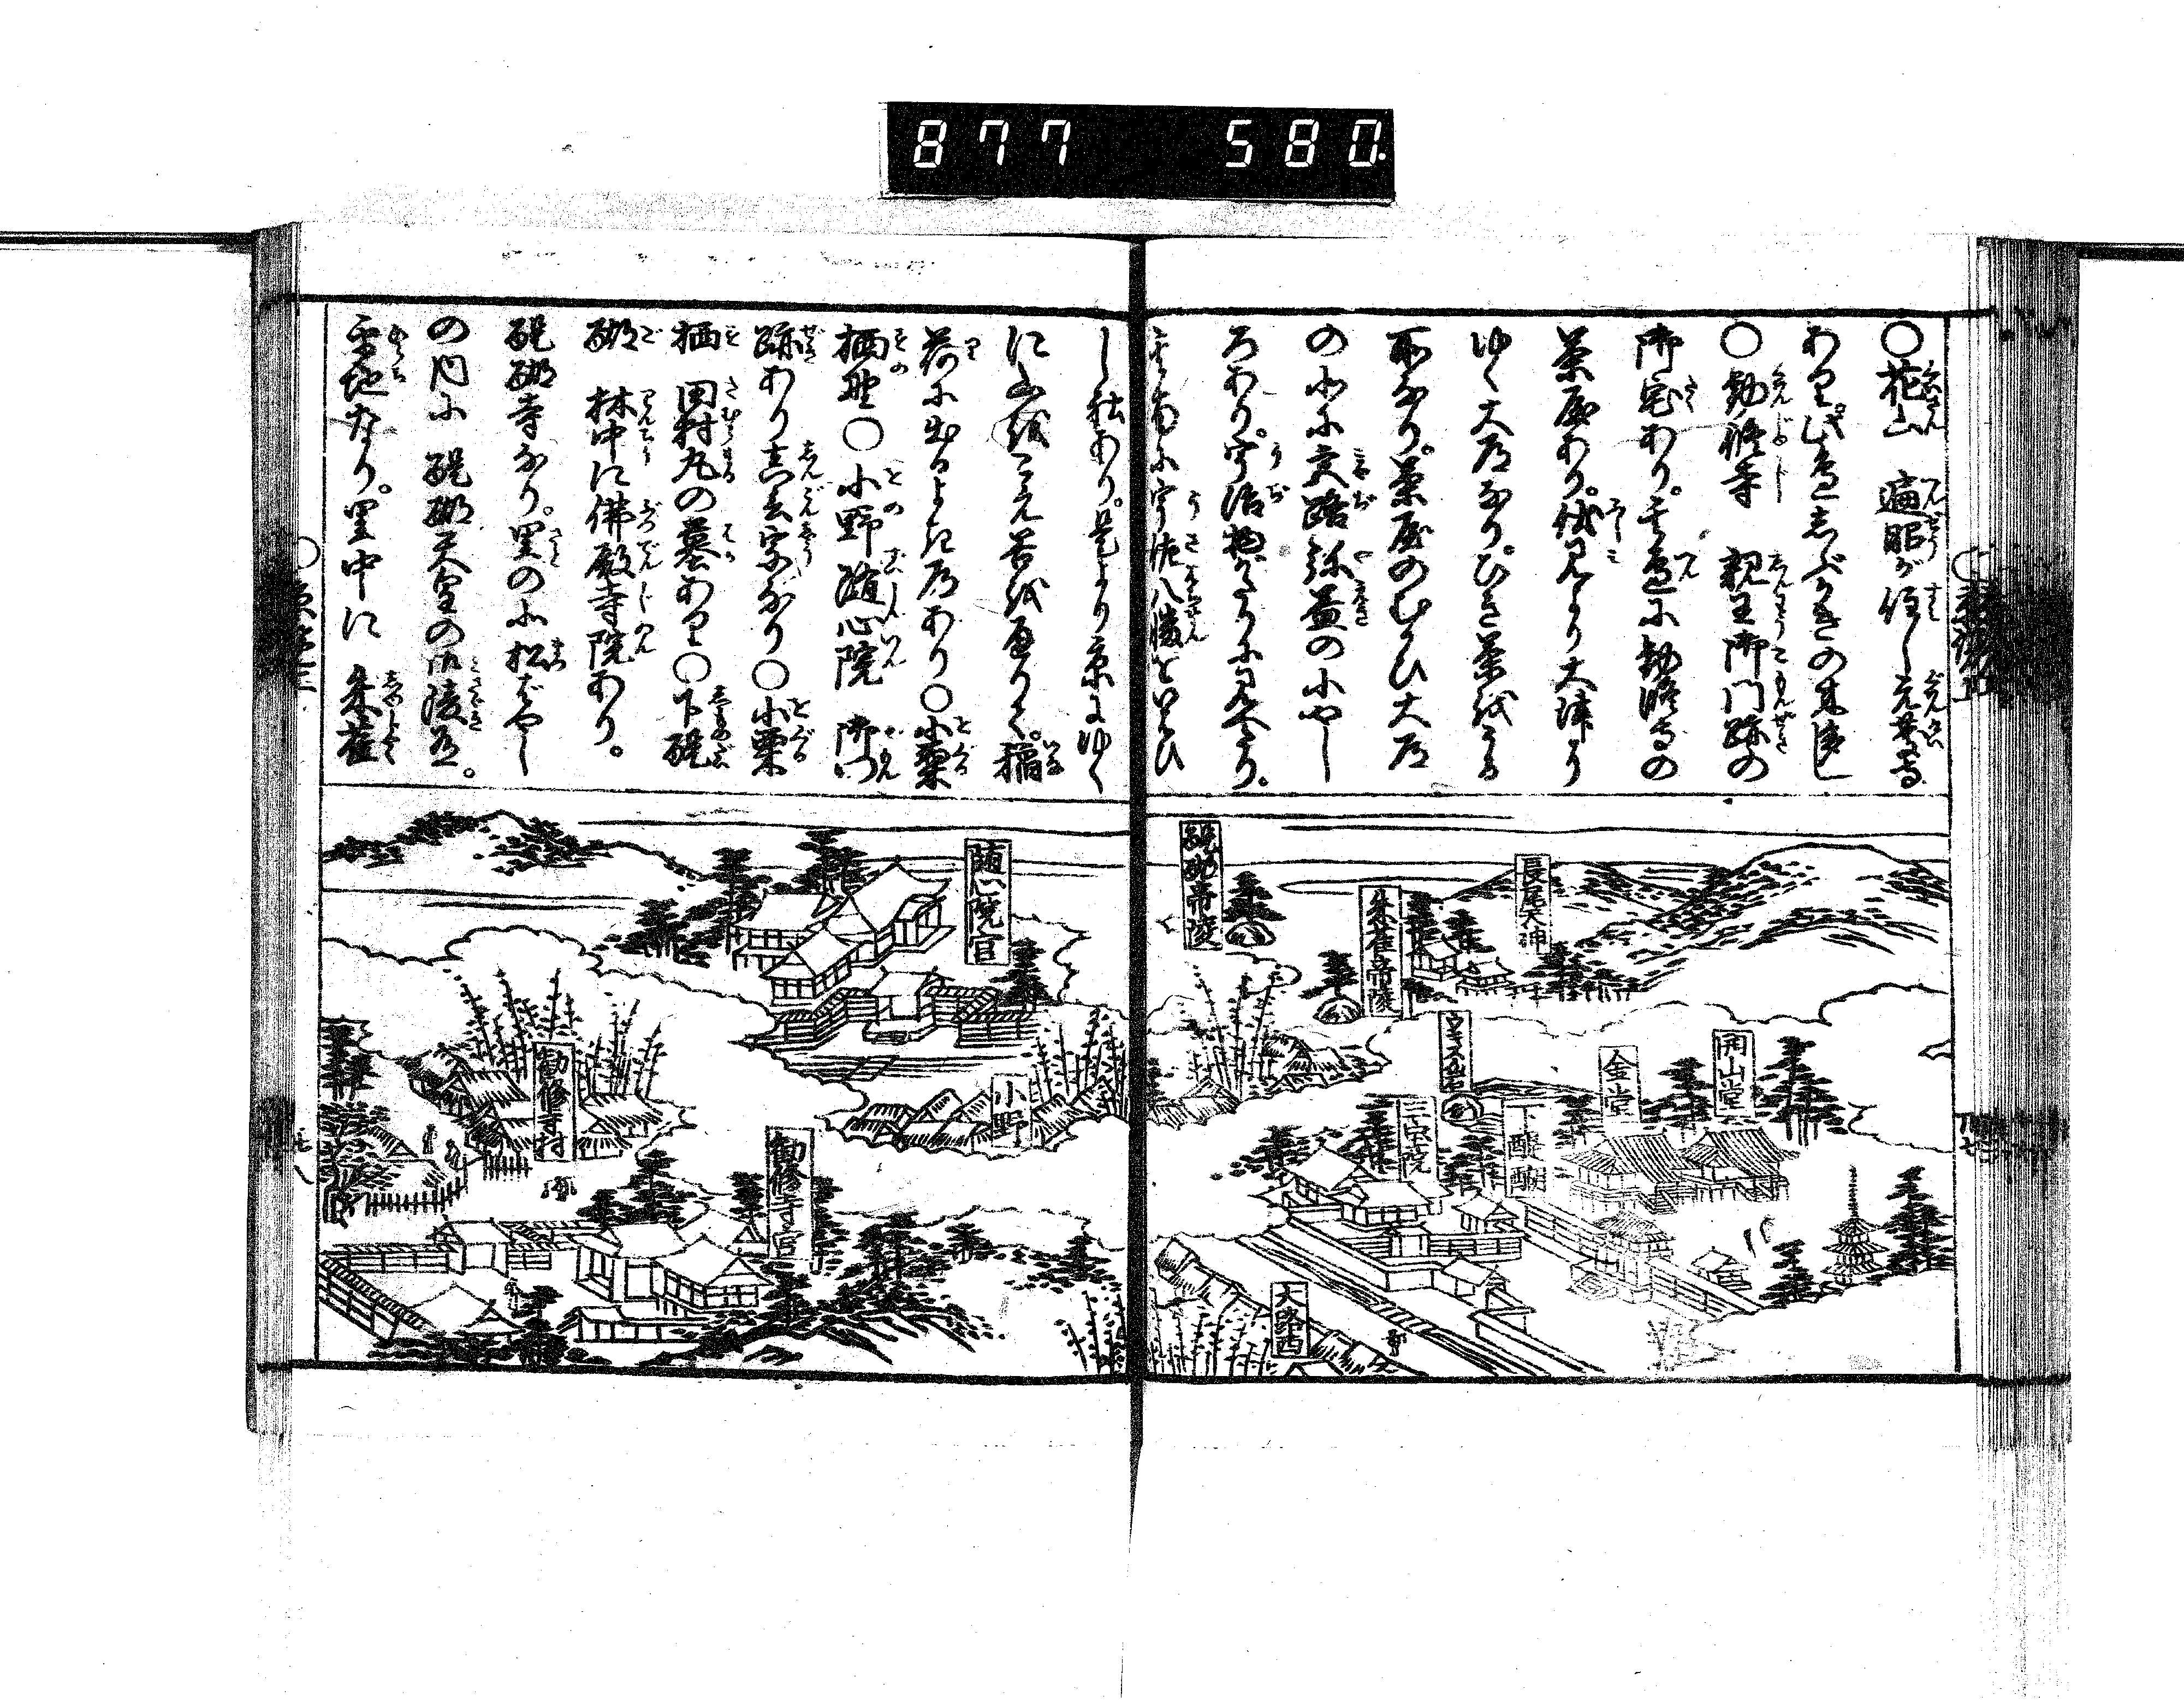 877 580.
○花山 遍昭が住し元慶寺
あり此邊しぶがきの名物し
○勧修寺 親王御門跡の
御宅あり。其邊に勧修寺の
茶屋あり。伏見より大津へ
ゆく大道なり。ひき茶をうる
所なり。茶屋のむかひ大道
の北に宮路弥益のやし
ろあり。宇治物がたりに見へたり。
其南に宇佐八幡といひ
し社あり。是より京にゆく
に山越
荷に出るよき道あり○小栗
栖野○小野随心院 御門
跡あり真言宗なり○小栗
栖 田村丸の墓あり○下醍
醐 林中に佛殿寺院あり。
醍醐寺なり。里の北松ばやし
の内に 醍醐天皇の御陵有。
平地なり。里中に 朱雀
醍醐帝陵
朱雀帝陵
長尾天神
開山堂
金堂
下醍醐
三宝院
大路西
随心院宮
小野
勧修寺村
勧修寺宮